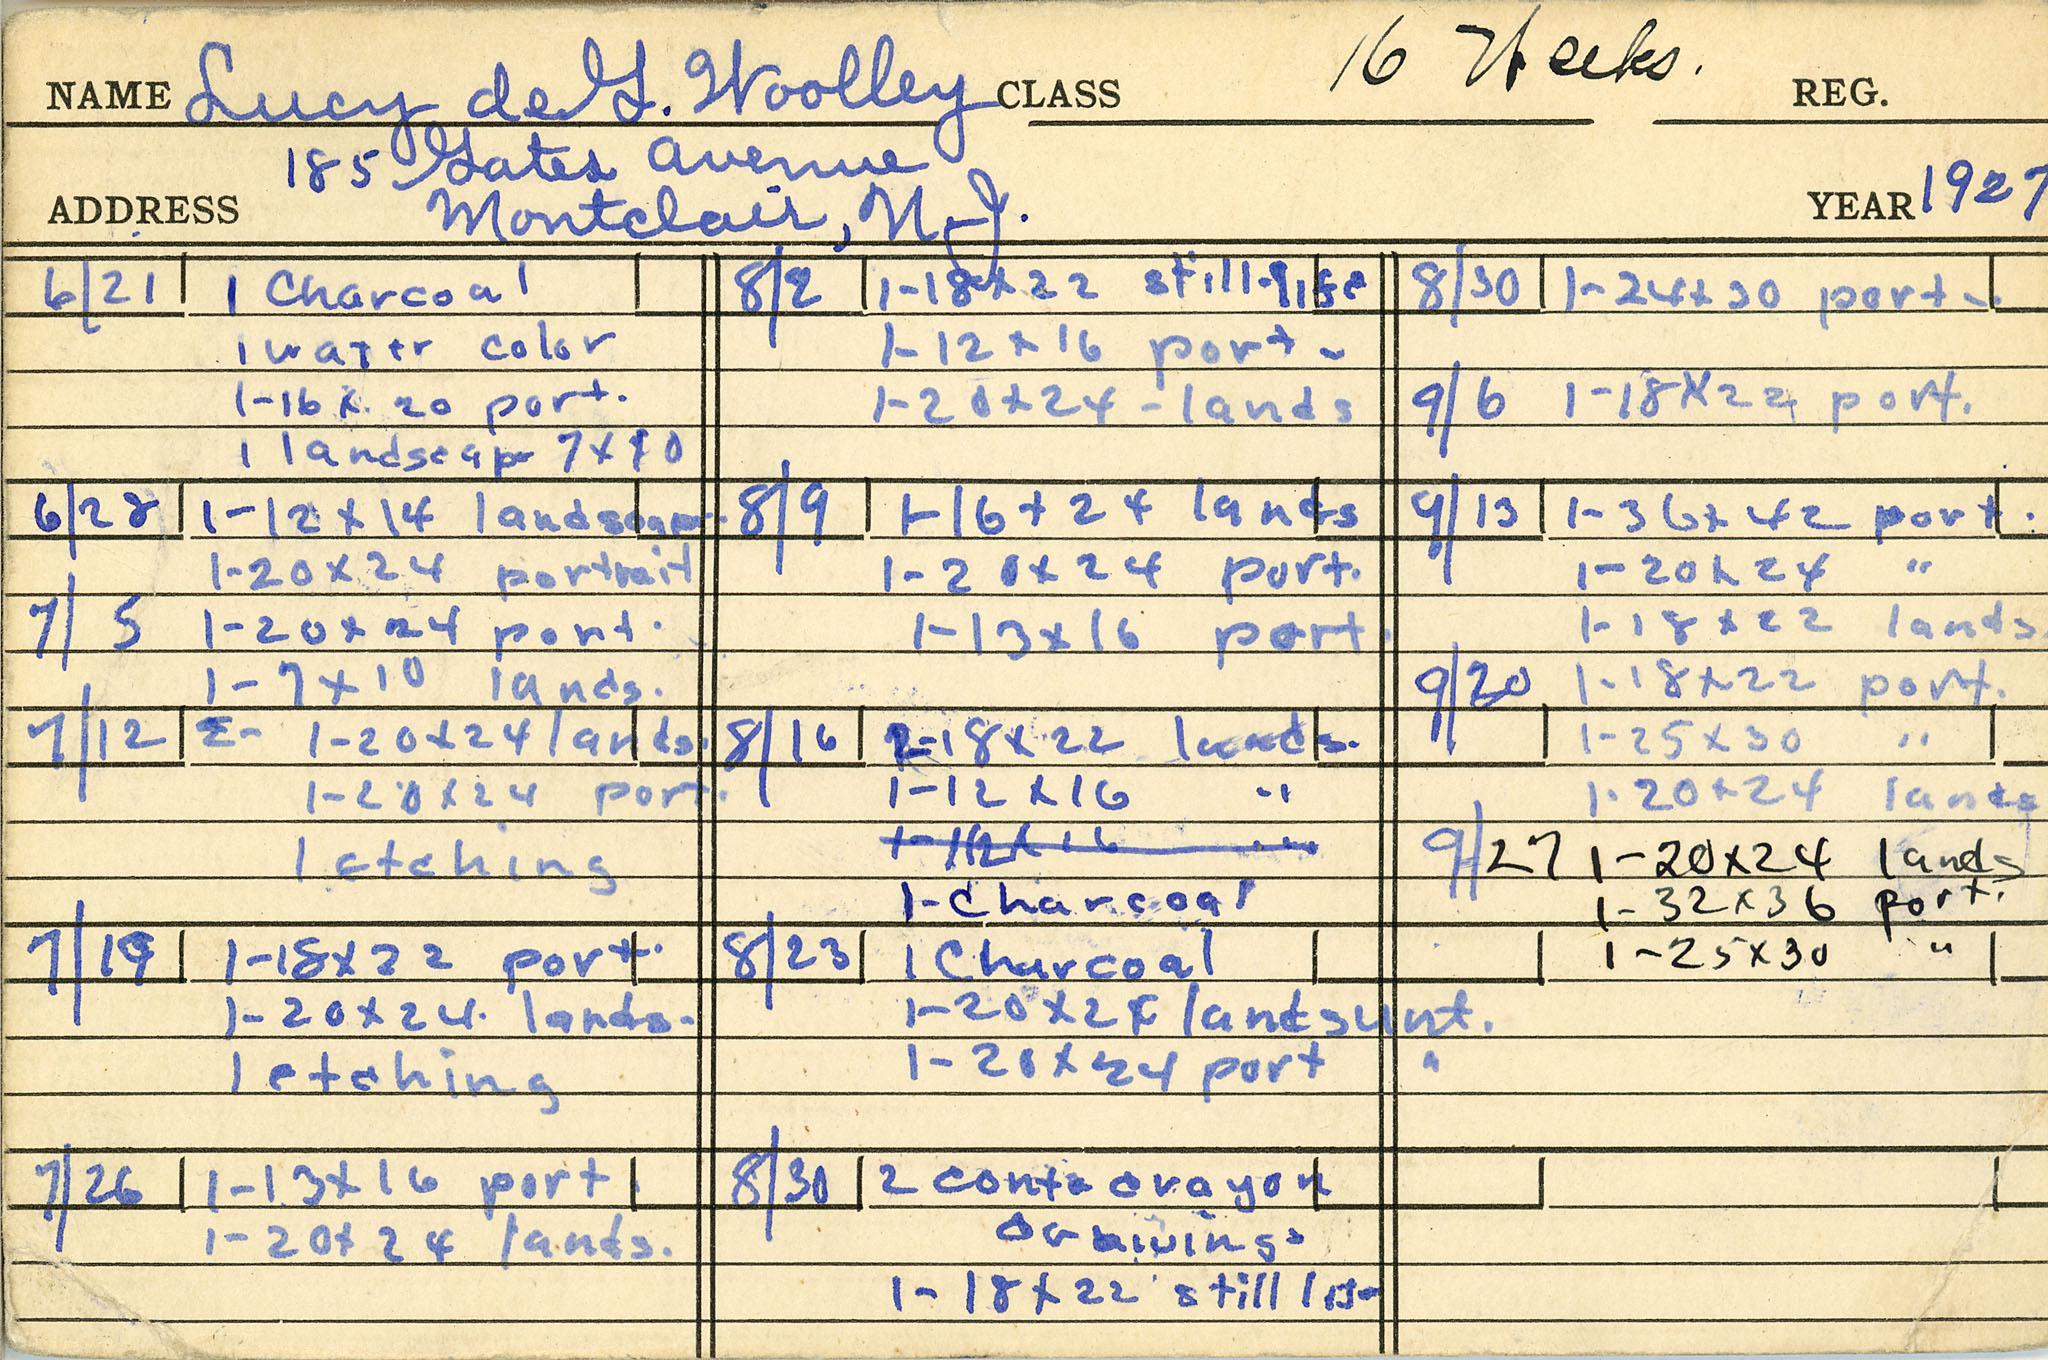 NAME Lucy de G. Woolley CLASS 16 Weeks. REG.
185 Gates Avenue
ADDRESS Montclair, N.J. YEAR 1927
6/21 1 Charcoal
1 water color
1-16 x 20 port.
1 landscape 7x10
6/28 1-12 x 14 landscape.
1-20 x 24 portrait
7/5 1-20 x 24 port.
1-7 x 10 lands.
7/12 1-20 x 24 lands.
1-20 x 24 port.
1 etching
7/19 1-18 x 22 port.
1-20 x 24. lands.
1 etching
7/26 1-13 x 16 port.
1-20 x 24 lands.
8/2 1-18 x 22 still-life
1-12 x 16 port-
1-20 x 24 - lands
8/9 1-16 x 24 lands
1-20 x 24 port.
1-13 x 16 port.
8/16 2-18 x 22 lands.
1-12 x 16 "
1-12 x 16 "
1-Charcoal
8/23 1 Charcoal
1-20 x 24 lands unt.
1-20 x 24 port "
8/30 2 conte crayon
drawings
1-18 x 22 still life
8/30 1-24 x 30 port-.
9/6 1-18 x 22 port.
9/13 1-36 x 42 port.
" 1-20 x 24 "
1-18 x 22 lands.
9/20 1-18 x 22 port.
1-25 x 30 "
1-20 x 24 lands
9/27 1-20 x 24 lands
1-32 x 36 port.
1-25 x 30 "